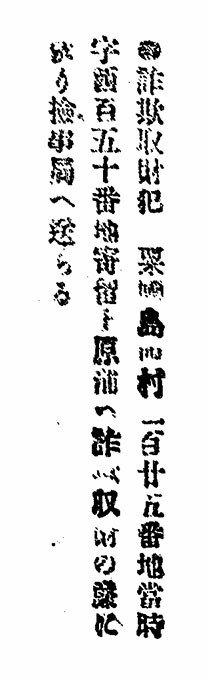 ◉詐欺取財犯 粟國島田村一百廿五番地當時
字西百五十番地寄留上原浦ハ詐欺取財の疑に
より撿事局へ送らる